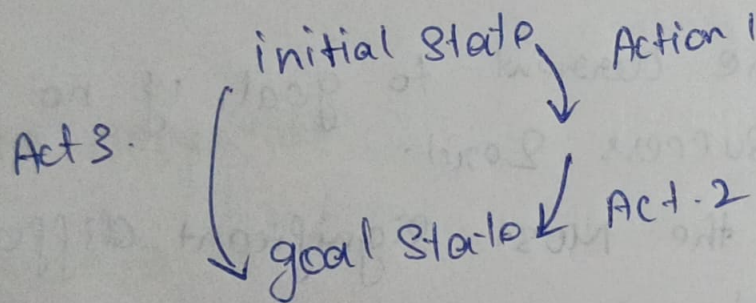 initial State Action 1
Act 3.
Act. 2
goal State